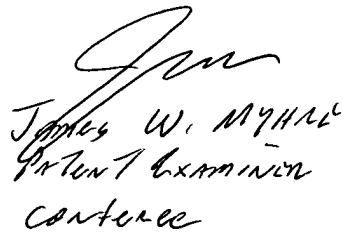 James W. Myhre
Patent Examiner
Conferee